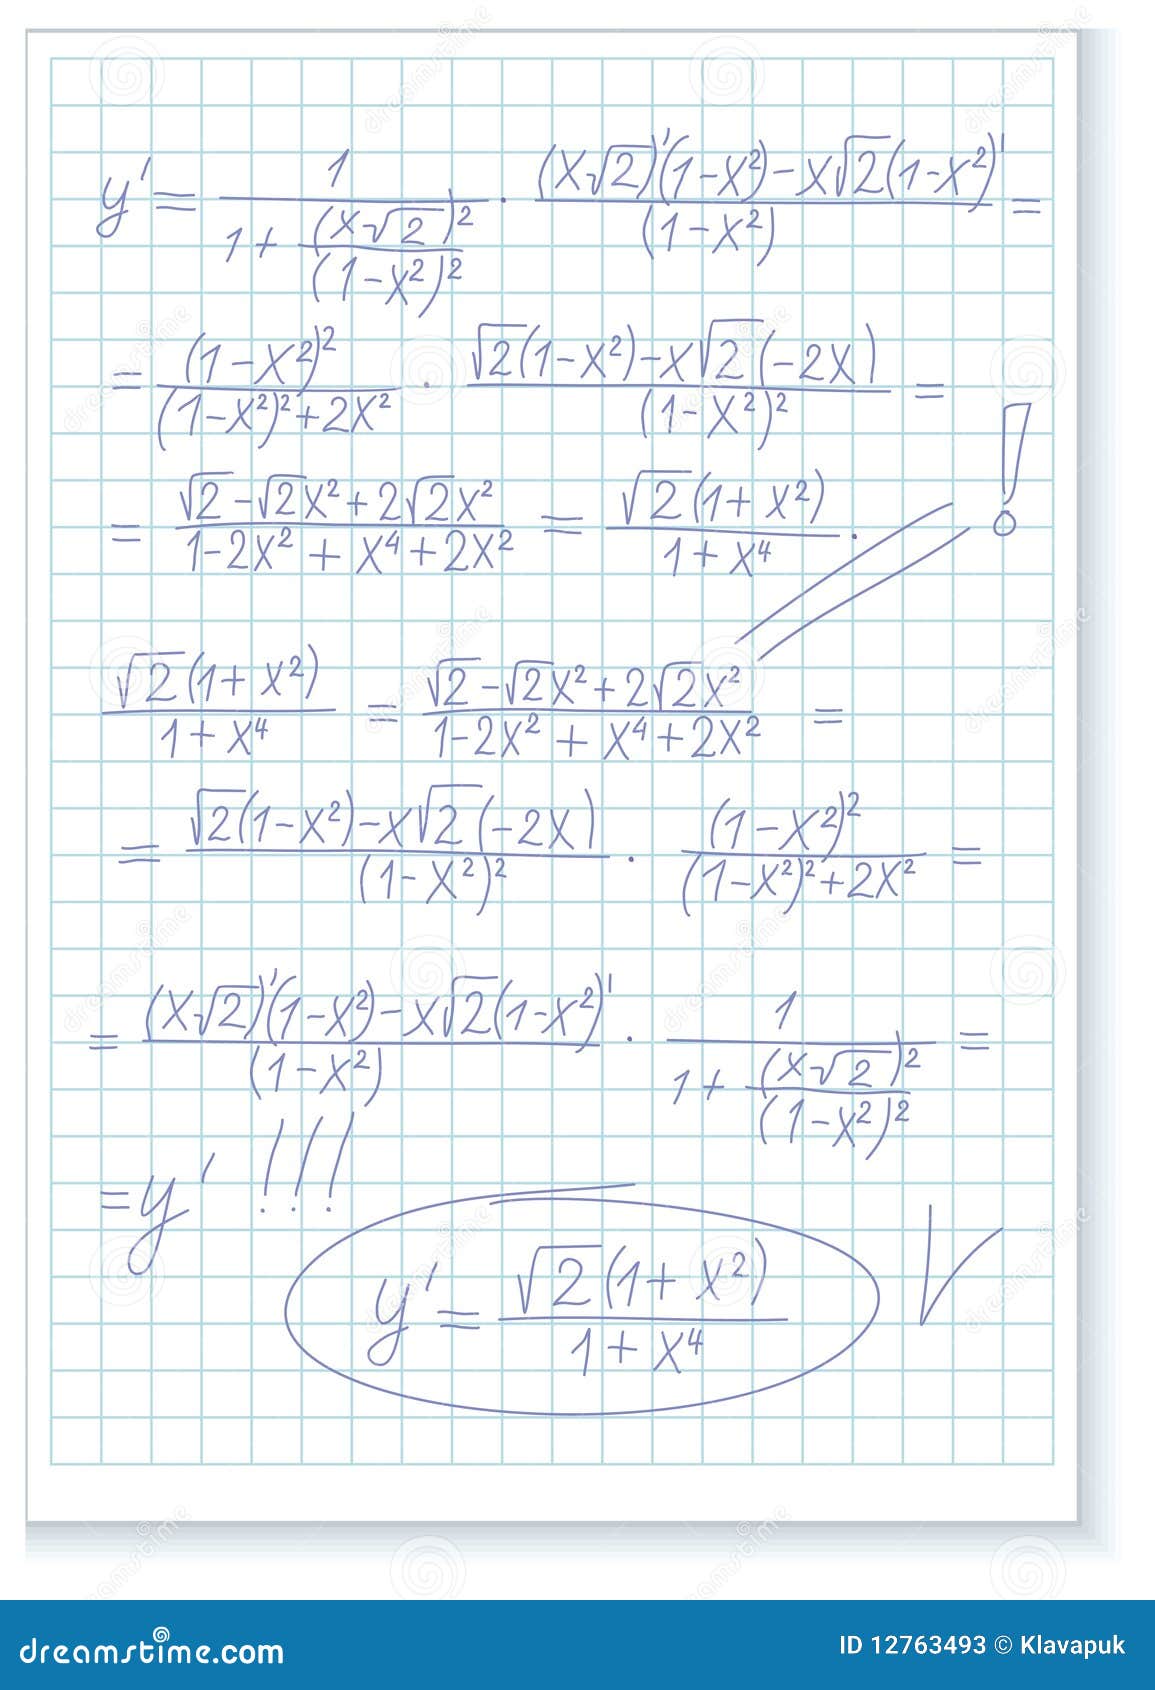 y' = 1 / (1 + (x√2)² / (1-x²)²) · ((x√2)'(1-x²) - x√2(1-x²)') / (1-x²) =
= (1-x²)² / ((1-x²)² + 2x²) · (√2(1-x²) - x√2(-2x)) / (1-x²)² =
= (√2 - √2x² + 2√2x²) / (1 - 2x² + x⁴ + 2x²) = √2(1 + x²) / (1 + x⁴) . !
√2(1 + x²) / (1 + x⁴) = (√2 - √2x² + 2√2x²) / (1 - 2x² + x⁴ + 2x²) =
= (√2(1-x²) - x√2(-2x)) / (1-x²)² · (1-x²)² / ((1-x²)² + 2x²) =
= ((x√2)'(1-x²) - x√2(1-x²)') / (1-x²) · 1 / (1 + (x√2)² / (1-x²)²) =
= y' !!!
y' = √2(1 + x²) / (1 + x⁴) V
dreamstime.com ID 12763493 © Klavapuk